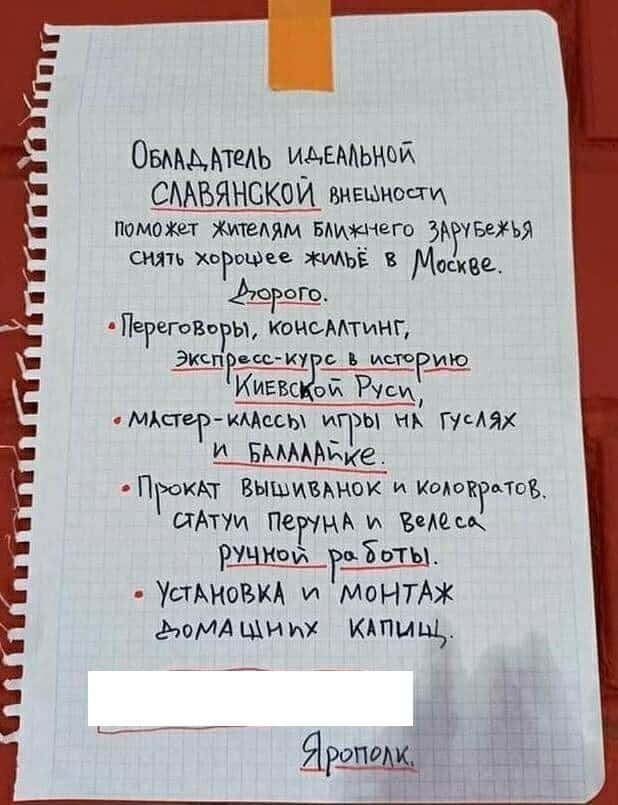 Обладатель идеальной
славянской внешности
поможет жителям ближнего зарубежья
снять хорошее жильё в Москве.
Дорого.
• Переговоры, консалтинг,
экспресс-курс в историю
Киевской Руси,
• мастер-классы игры на гуслях
и балалайке.
• Прокат вышиванок и коловратов.
статуи Перуна и Велеса
ручной работы.
• Установка и монтаж
домашних капищ.
Ярополк.